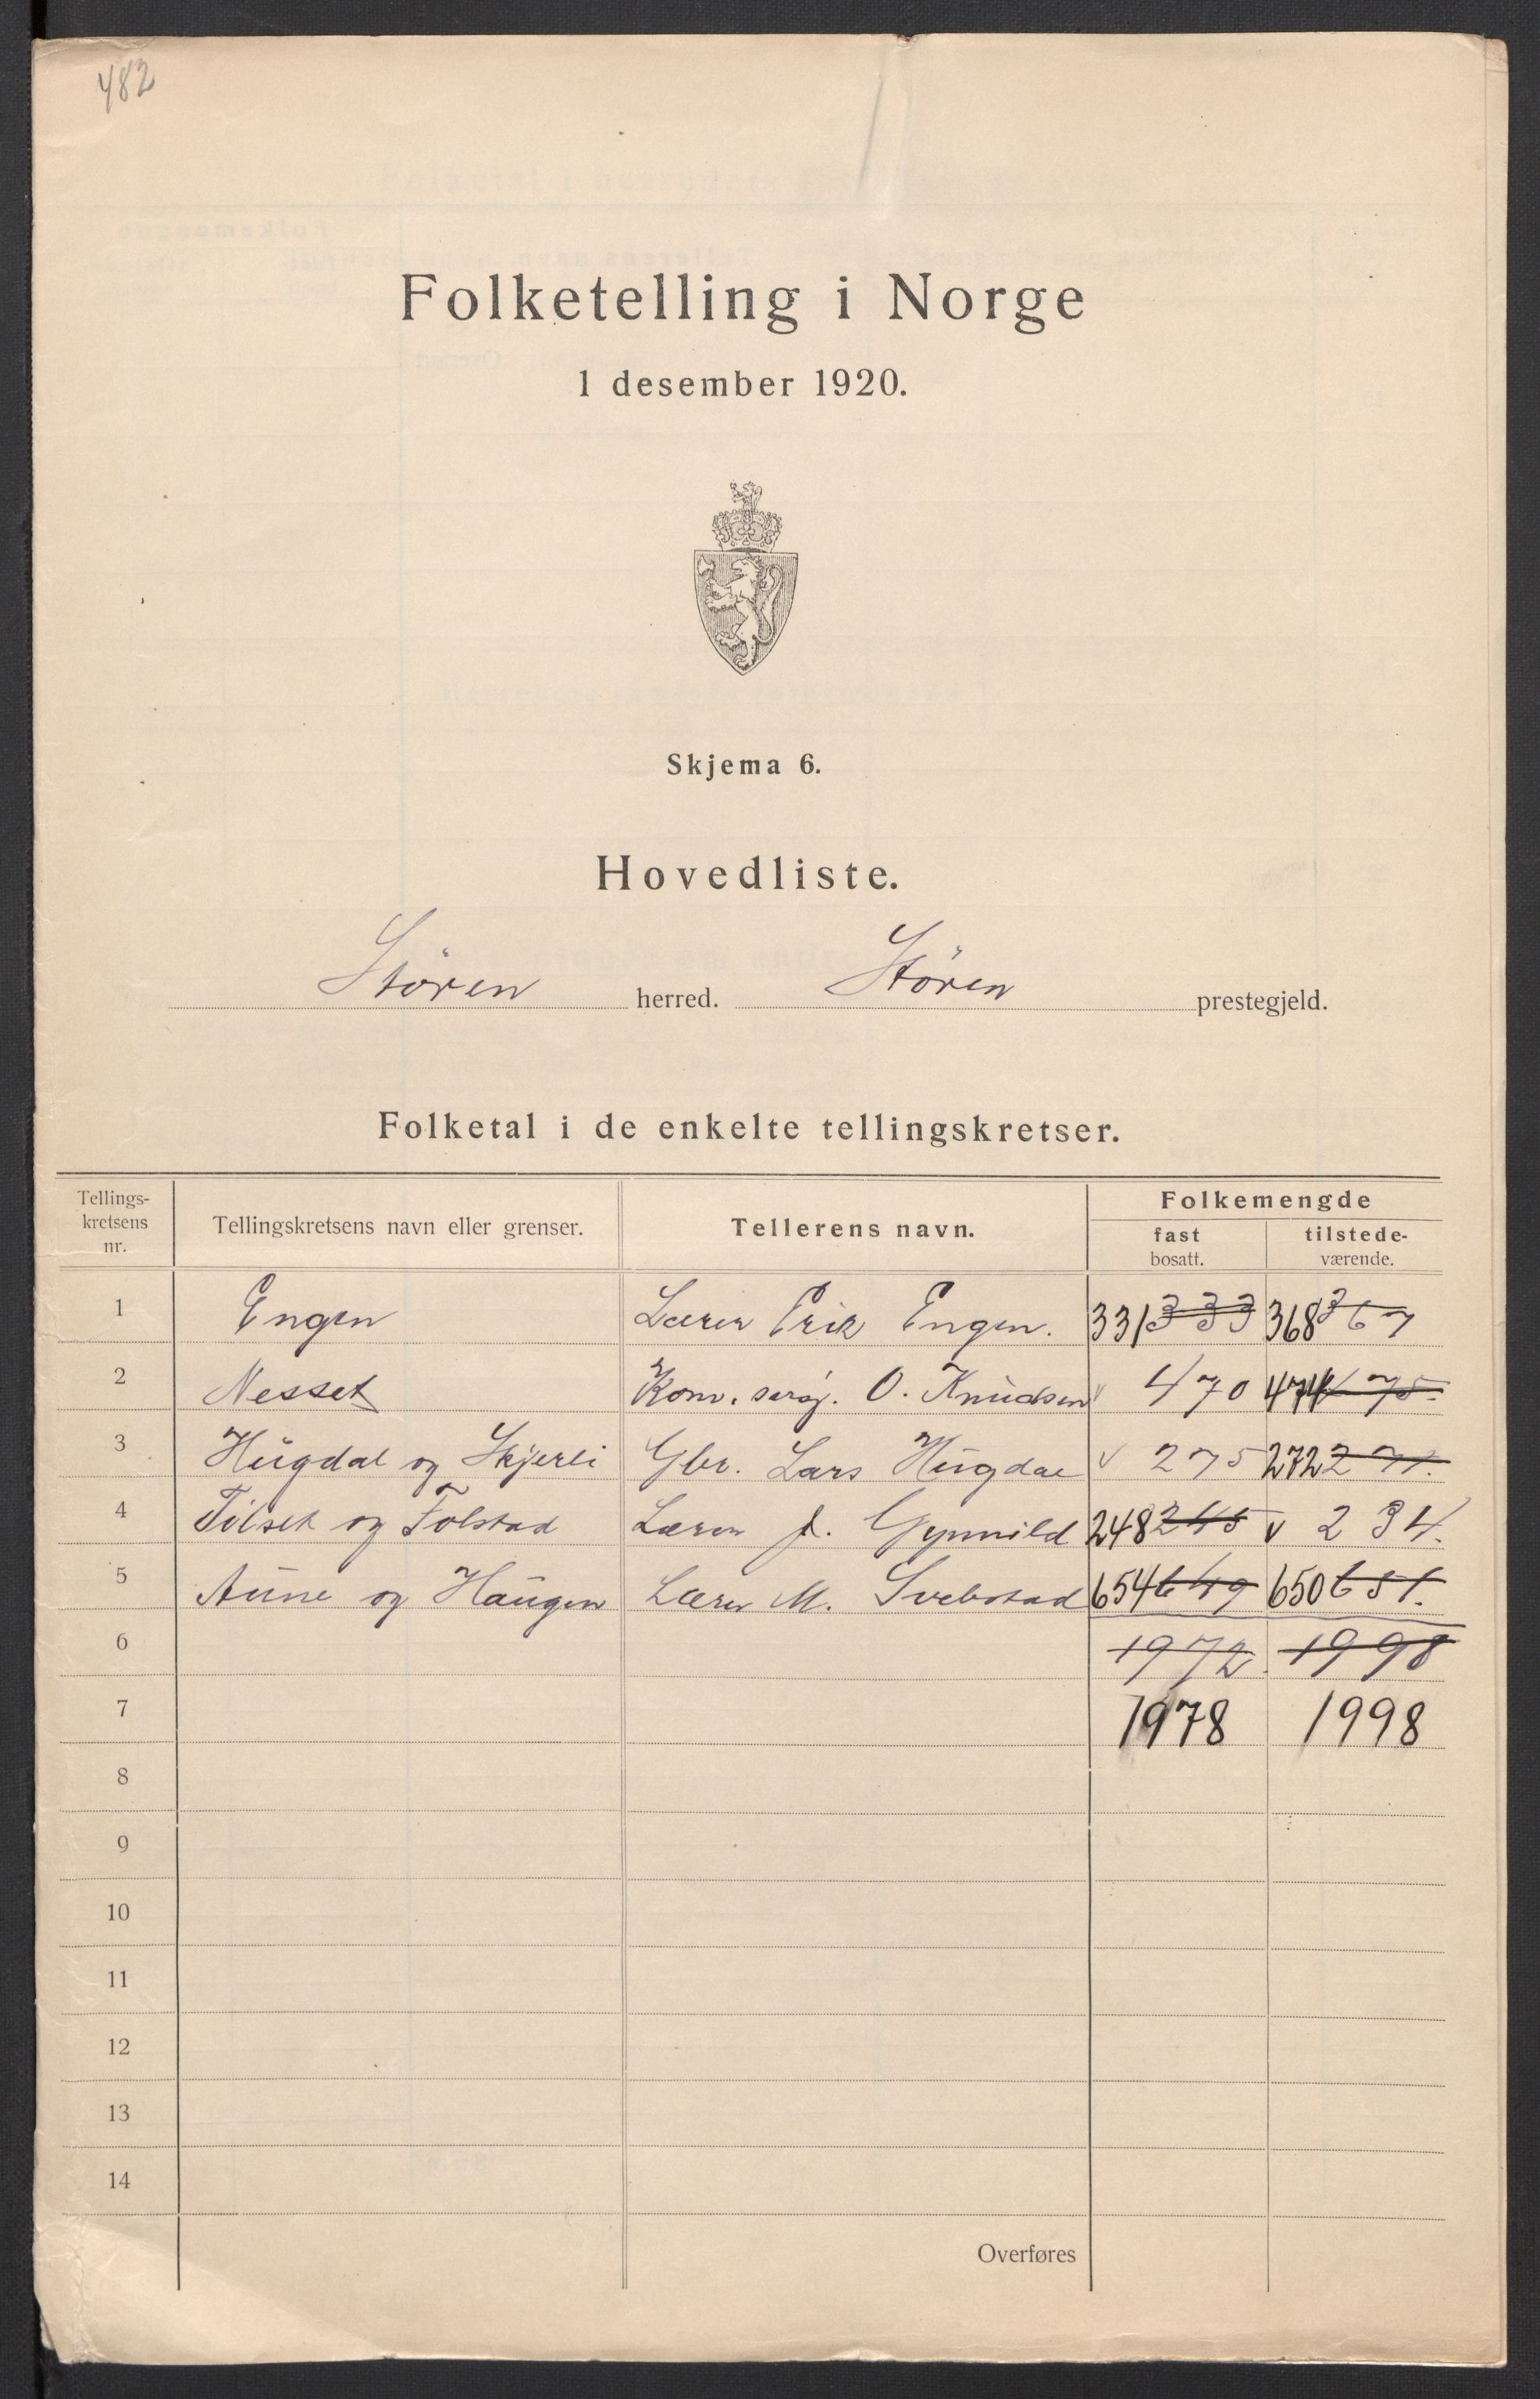 482
Folketelling i Norge
1 desember 1920.
Skjema 6.
Hovedliste.
Stören herred. Stören prestegjeld.
Folketal i de enkelte tellingskretser.
Tellings-kretsens nr. Tellingskretsens navn eller grenser. Tellerens navn. Folkemengde
fast bosatt. tilstede-værende.
1 Engen Lærer Erik Engen. 331 333 368 367
2 Nesset Korn. serj. O. Knudsen v 470 474 475.
3 Hugdal og Skjerli Gbr. Lars Hugdal v 275 272 271.
4 Tilset og Folstad Lærer J. Gynnild 248 245 v 234.
5 Aune og Haugen Lærer M. Svebstad 654 649 650 651.
6 1972 1998
7 1978 1998
8
9
10
11
12
13
14
Overføres